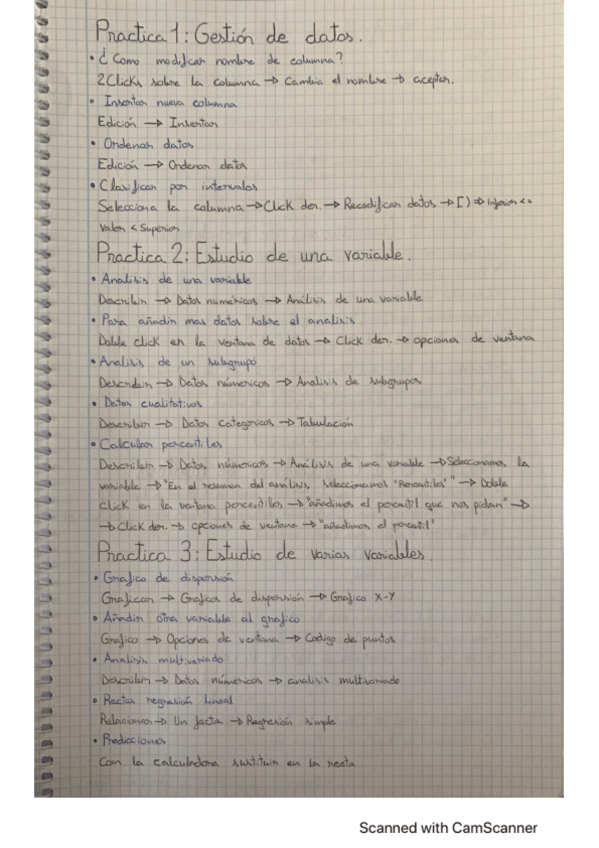 Practica 1: Gestión de datos.
• ¿Como modificar nombre de columna?
2 Clicks sobre la columna → Cambia el nombre → aceptar.
• Insertar nueva columna
Edición → Insertar
• Ordenar datos
Edición → Ordenar datos
• Clasificar por intervalos
Selecciona la columna → Click der. → Recodificar datos → [ ) ⇒ Inferior <=
Valor < Superior
Practica 2: Estudio de una variable.
• Analisis de una variable
Describir → Datos numéricos → Análisis de una variable
• Para añadir mas datos sobre el analisis
Doble click en la ventana de datos → Click der. → opciones de ventana
• Analisis de un subgrupo
Describir → Datos númericos → Analisis de subgrupos
• Datos cualitativos
Describir → Datos categoricos → Tabulación
• Calcular percentiles
Describir → Datos númericos → Análisis de una variable → Seleccionamos la
variable → "En el resumen del análisis, seleccionamos "Percentiles" " → Doble
click en la ventana percentiles → "añadimos el percentil que nos pidan" →
→ Click der. → opciones de ventana → "añadimos el percentil"
Practica 3: Estudio de varias variables.
• Grafico de dispersión
Graficar → Graficos de dispersión → Grafico X-Y
• Añadir otra variable al grafico
Grafico → Opciones de ventana → Codigo de puntos
• Analisis multivariado
Describir → Datos númericos → analisis multivariado
• Rectas regresión lineal
Relacionar → Un factor → Regresión simple
• Predicciones
Con la calculadora sustituir en la recta
Scanned with CamScanner